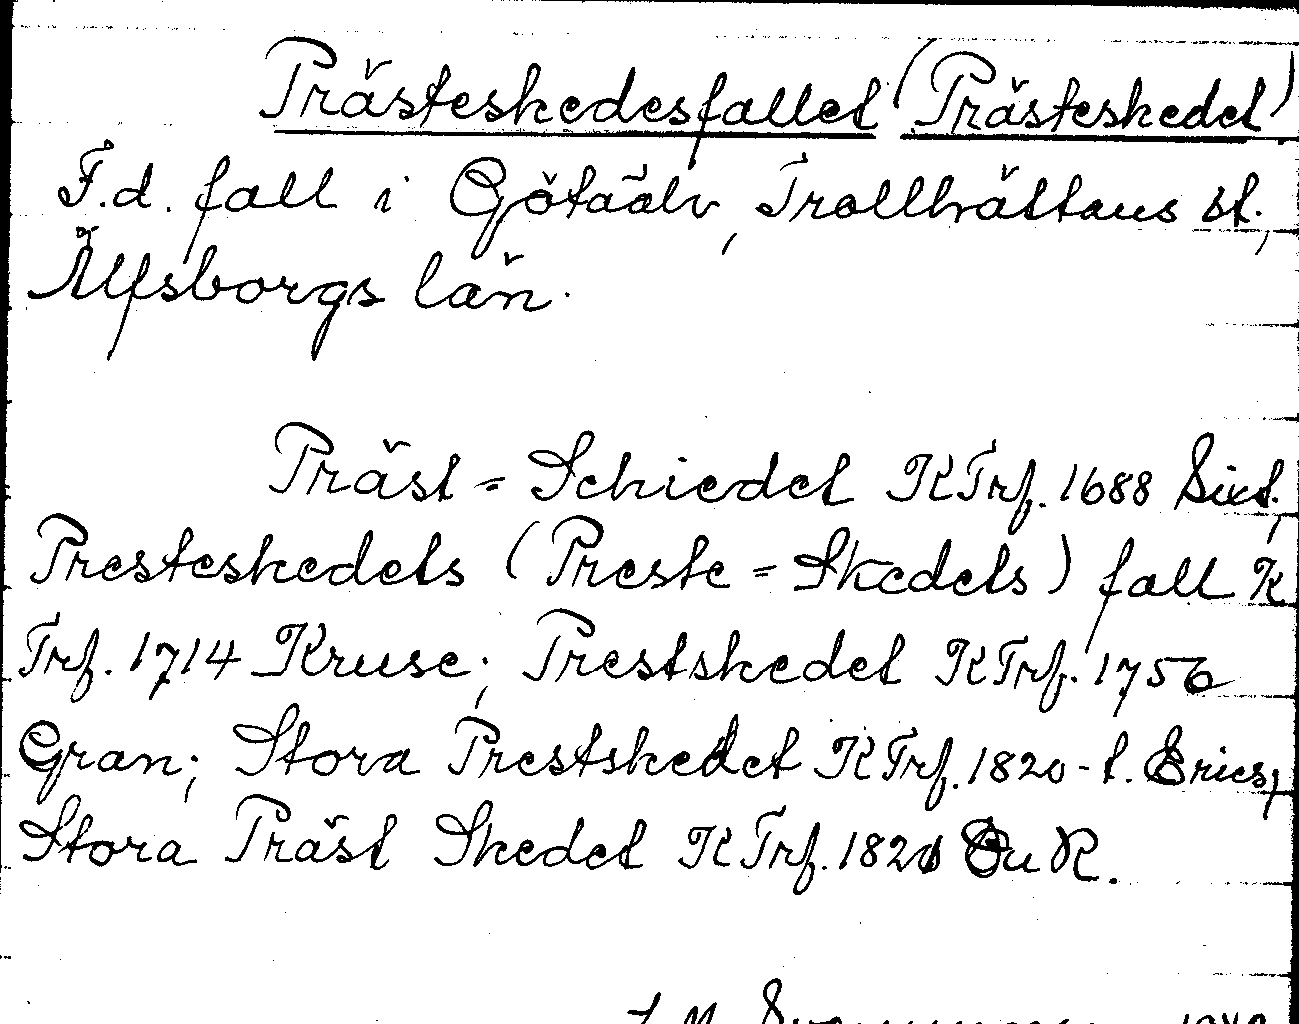 Prästeskedesfallet (Prästeskedet)
F.d. fall i Götaälv, Trollhättans st.,
Älfsborgs län.
Präst = Schiedet KTrf. 1688
Presteskedets (Preste = Skedets) fall K
Trf. 1714 Kruse; Prestskedet KTrf. 1756
Gran; Stora Prestskedet KTrf. 1820-t. Erics,
Stora Präst Skedet KTrf. 1820